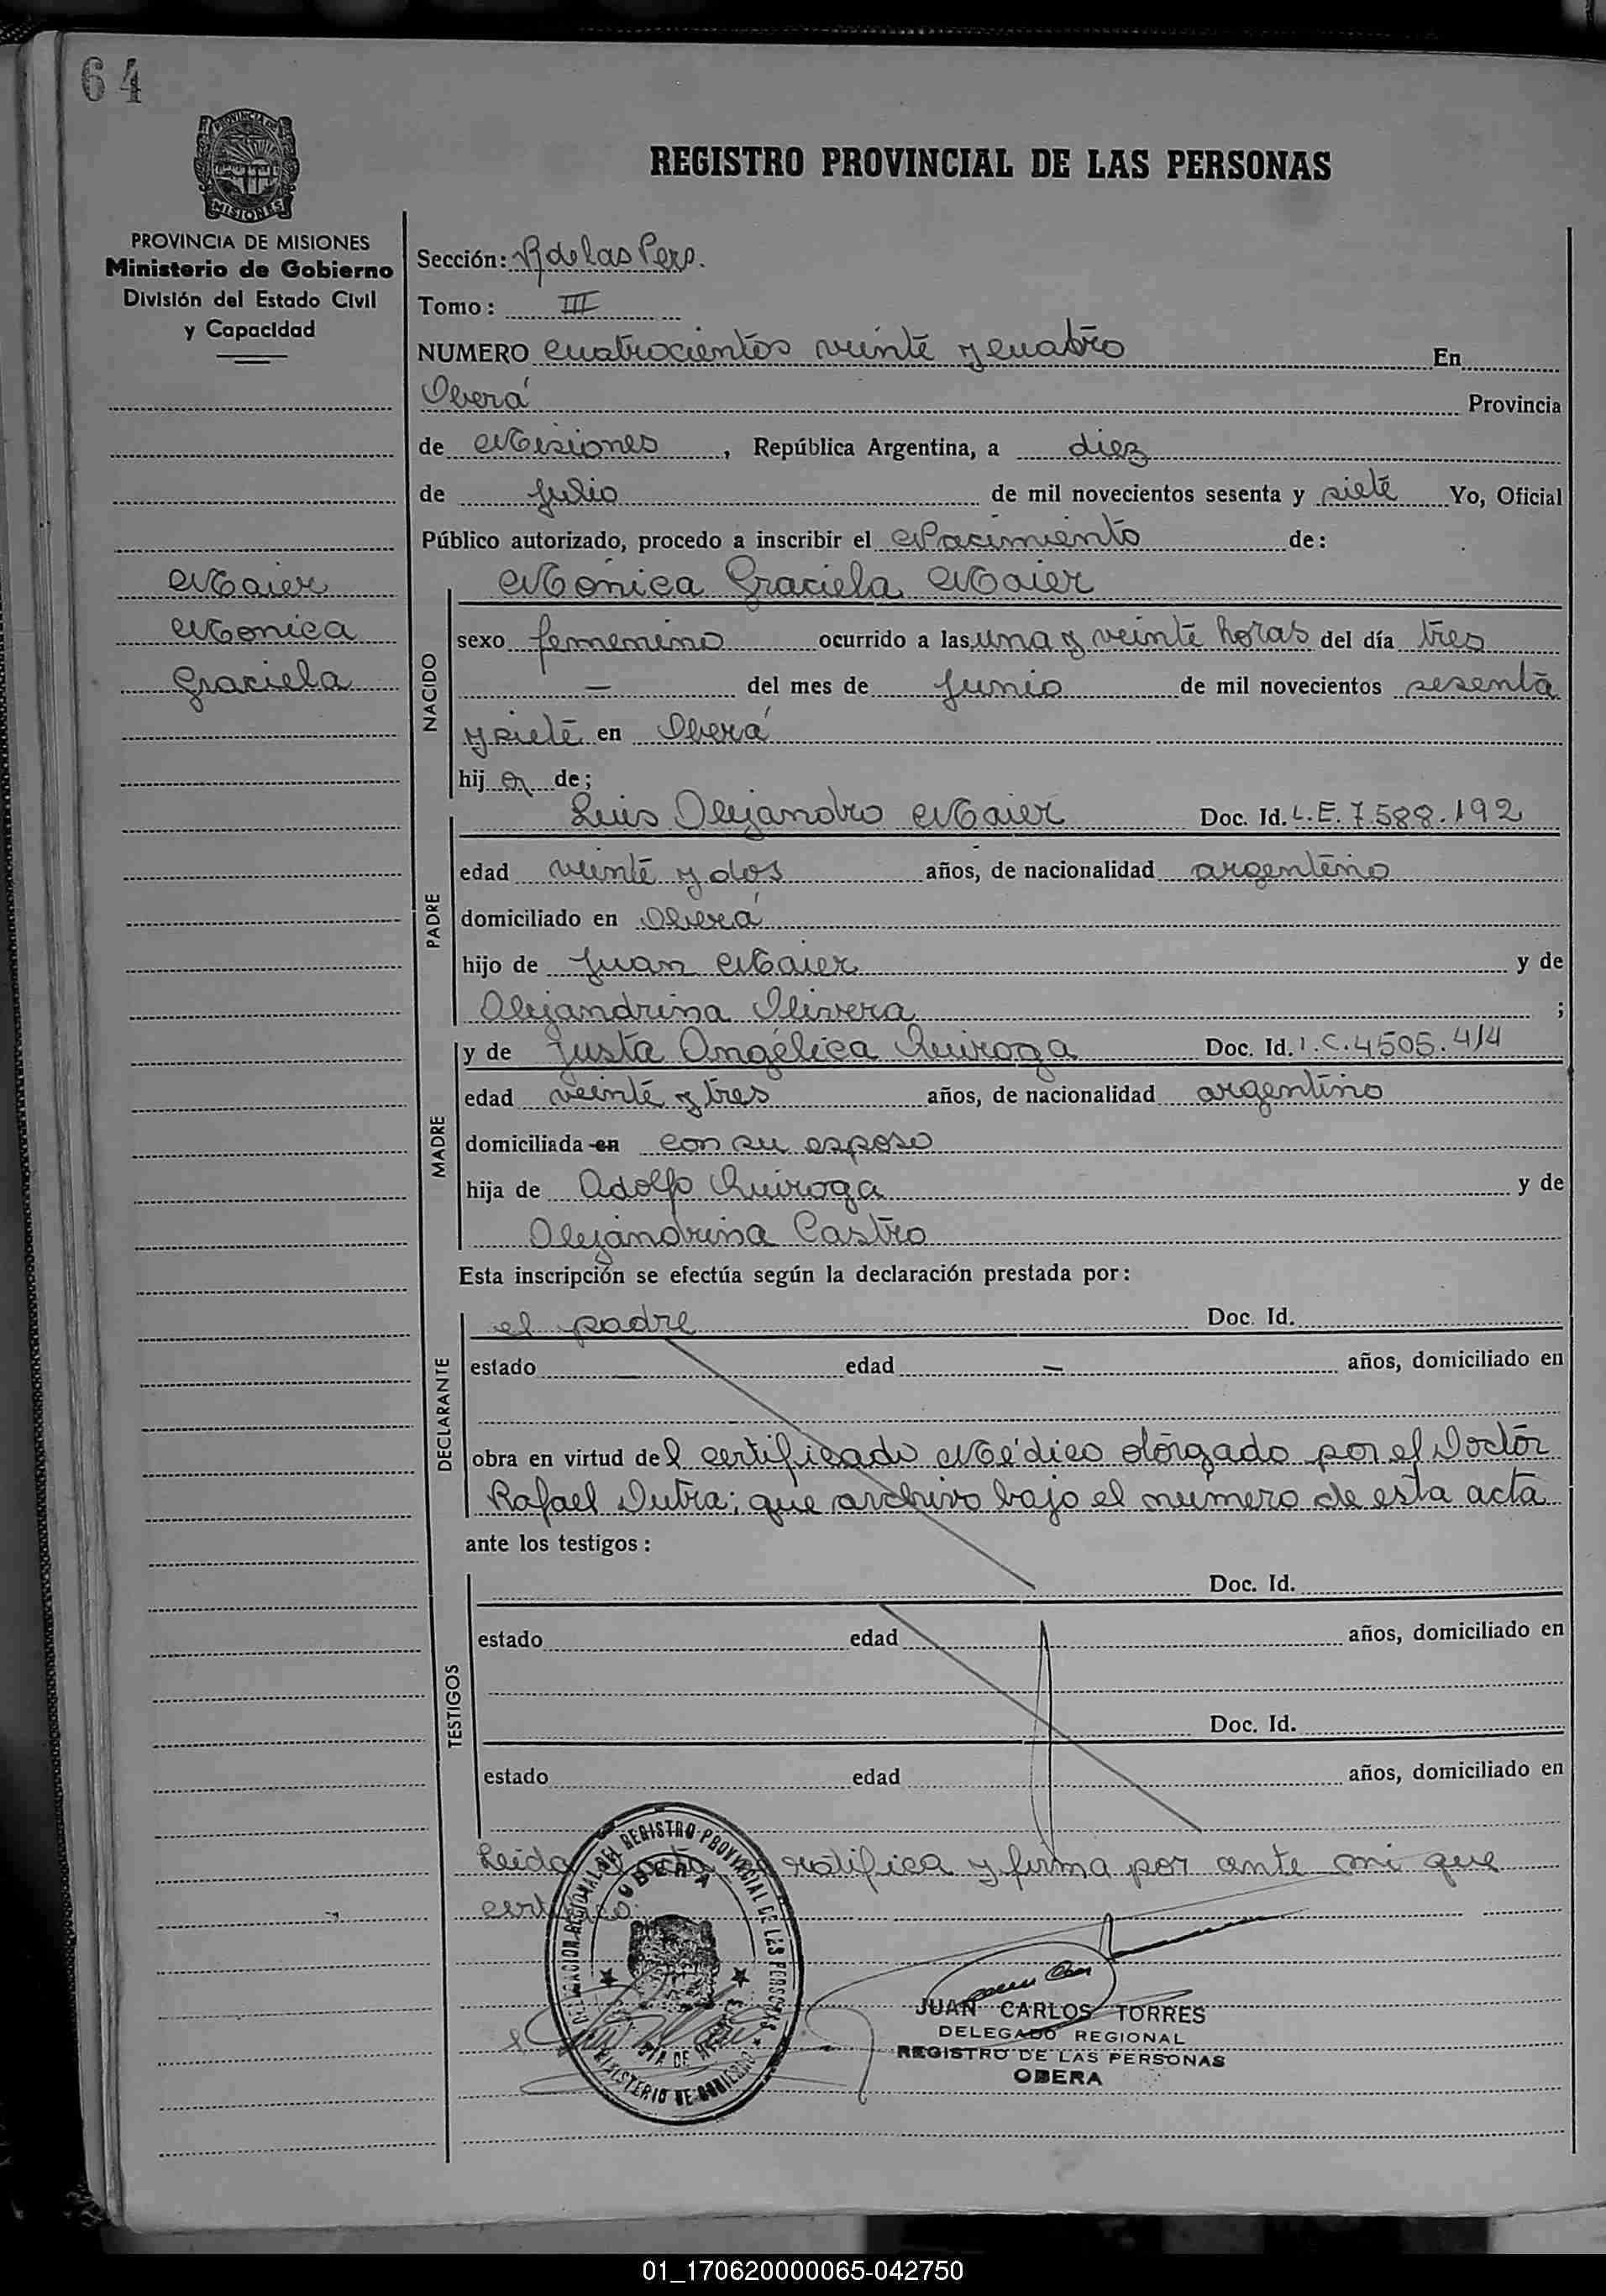 64
PROVINCIA DE
MISIONES
PROVINCIA DE MISIONES
Ministerio de Gobierno
División del Estado Civil
y Capacidad
Maier
Monica
Graciela
REGISTRO PROVINCIAL DE LAS PERSONAS
Sección: R de las Pers.
Tomo: III
NUMERO cuatrocientos veinte y cuatro En
Oberá Provincia
de Misiones, República Argentina, a diez
de Julio de mil novecientos sesenta y siete Yo, Oficial
Público autorizado, procedo a inscribir el Nacimiento de:
NACIDO
Mónica Graciela Maier
sexo femenino ocurrido a las una y veinte horas del día tres
— del mes de Junio de mil novecientos sesenta
y siete en Oberá
hija de;
PADRE
Luis Alejandro Maier Doc. Id. L.E. 7.588.192
edad veinte y dos años, de nacionalidad argentino
domiciliado en Oberá
hijo de Juan Maier y de
Alejandrina Olivera ;
MADRE
y de Justa Angélica Quiroga Doc. Id. I.C. 4505.414
edad veinte y tres años, de nacionalidad argentino
domiciliada en con su esposo
hija de Adolfo Quiroga y de
Alejandrina Castro
Esta inscripción se efectúa según la declaración prestada por:
DECLARANTE
el padre Doc. Id.
estado — edad — años, domiciliado en
obra en virtud del certificado Médico otorgado por el Doctor
Rafael Dutra; que archivo bajo el numero de esta acta
ante los testigos:
TESTIGOS
Doc. Id.
estado edad años, domiciliado en
Doc. Id.
estado edad años, domiciliado en
Leida el acta ratifica y firma por ante mi que
certifico.
DELEGACION REGIONAL DEL REGISTRO PROVINCIAL DE LAS PERSONAS
OBERA
MINISTERIO DE GOBIERNO
JUAN CARLOS TORRES
DELEGADO REGIONAL
REGISTRO DE LAS PERSONAS
OBERA
01_170620000065-042750